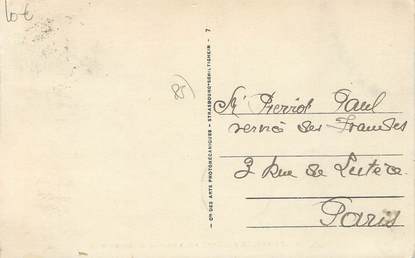 10€
85)
— Cie DES ARTS PHOTOMÉCANIQUES - STRASBOURG-SCHILTIGHEIM - 7
Mr Pierrot Paul
des
3 Rue de Lutèce
Paris